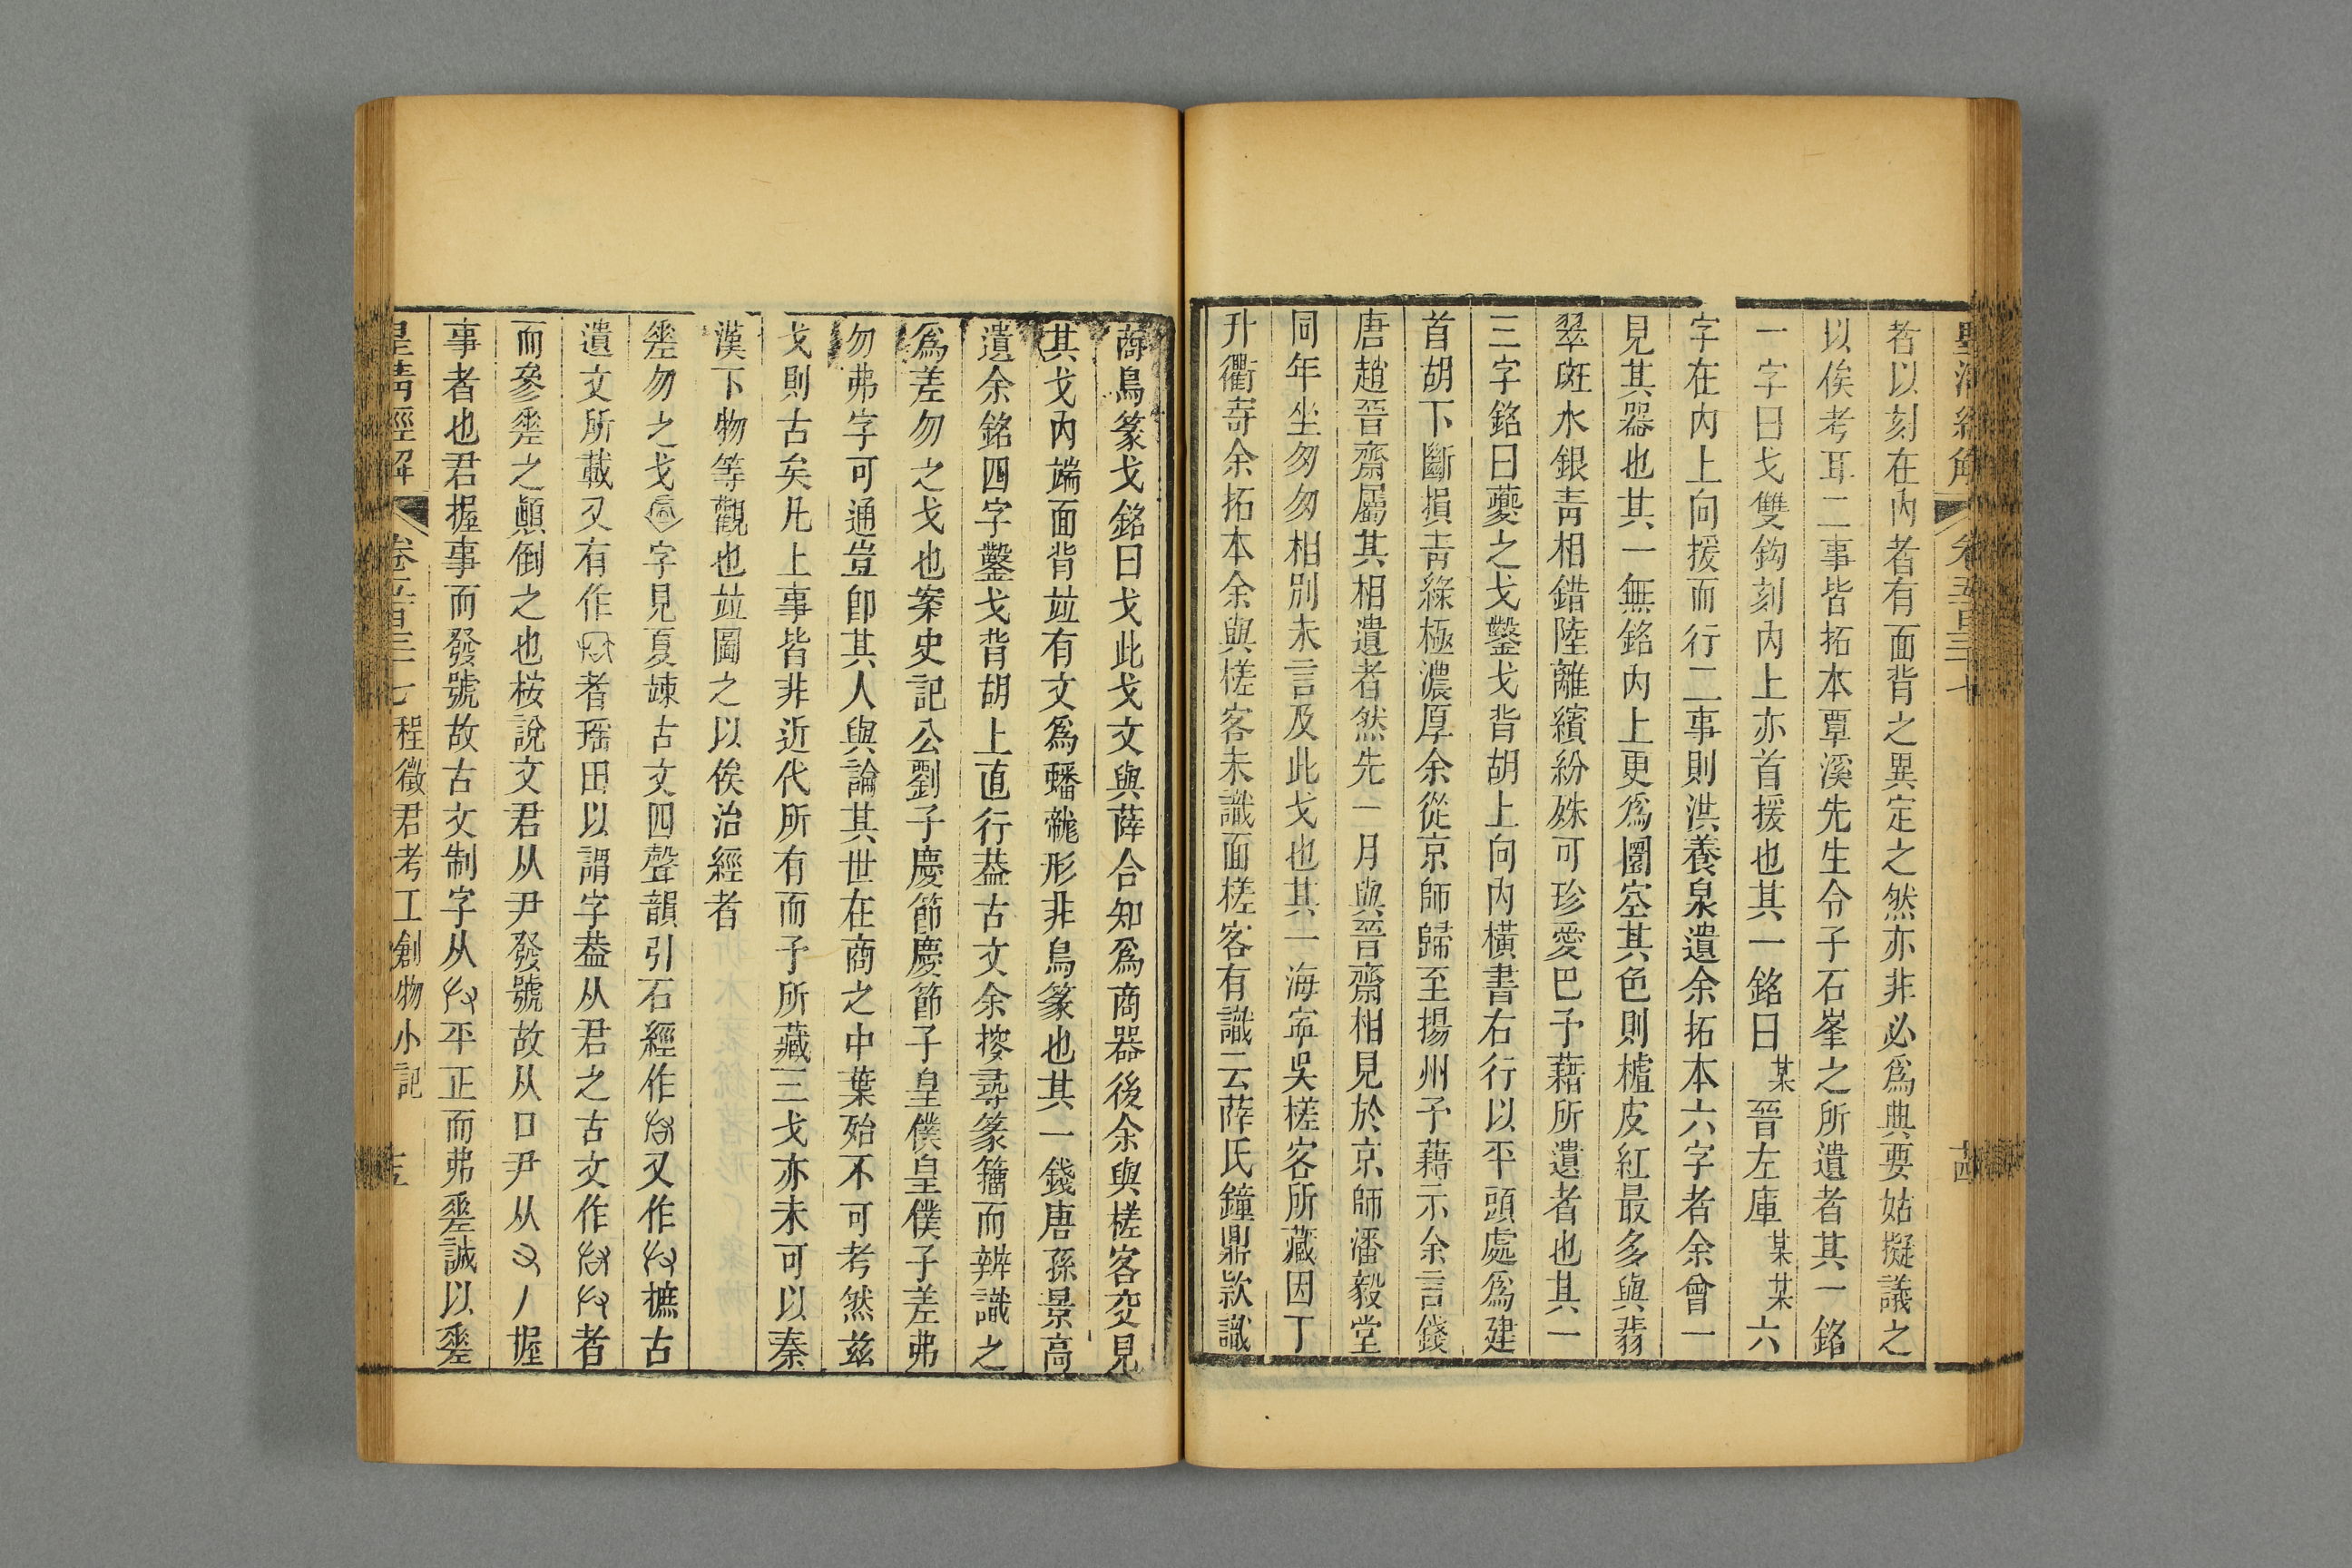 皇清經解 卷五百三十七 十四
者以刻在內者有面背之異定之然亦非必爲典要姑擬議之
以俟考耳二事皆拓本覃溪先生令子石峯之所遺者其一銘
一字曰戈雙鈎刻內上亦首援也其一銘曰某晉左庫某某六
字在內上向援而行二事則洪養泉遺余拓本六字者余曾一
見其器也其一無銘內上更爲圜空其色則樝皮紅最多與翡
翠斑水銀靑相錯陸離繽紛殊可珍愛巴予藉所遺者也其一
三字銘曰蘷之戈鑿戈背胡上向內橫書右行以平頭處爲建
首胡下斷損靑綠極濃厚余從京師歸至揚州予藉示余言錢
唐趙晉齋屬其相遺者然先一月與晉齋相見於京師潘毅堂
同年坐匆匆相別未言及此戈也其一海寍吳槎客所藏因丁
升衢寄余拓本余與槎客未識面槎客有識云薛氏鐘鼎款識
商鳥篆戈銘曰戈此戈文與薛合知爲商器後余與槎客交見
其戈內端面背竝有文爲蟠虺形非鳥篆也其一錢唐孫景高
遺余銘四字鑿戈背胡上直行葢古文余挍尋篆籀而辨識之
爲差勿之戈也案史記公劉子慶節慶節子皇僕皇僕子差弗
勿弗字可通豈卽其人與論其世在商之中葉殆不可考然兹
戈則古矣凡上事皆非近代所有而予所藏三戈亦未可以秦
漢下物等觀也竝圖之以俟治經者
𢀩勿之戈字見夏竦古文四聲韻引石經作又作摭古
遺文所載又有作者瑶田以謂字葢从君之古文作者
而參𢀩之顚倒之也桉說文君从尹發號故从口尹从丿握
事者也君握事而發號故古文制字从平正而弗𢀩誠以𢀩
皇清經解 卷五百三十七 程徵君考工創物小記 十五